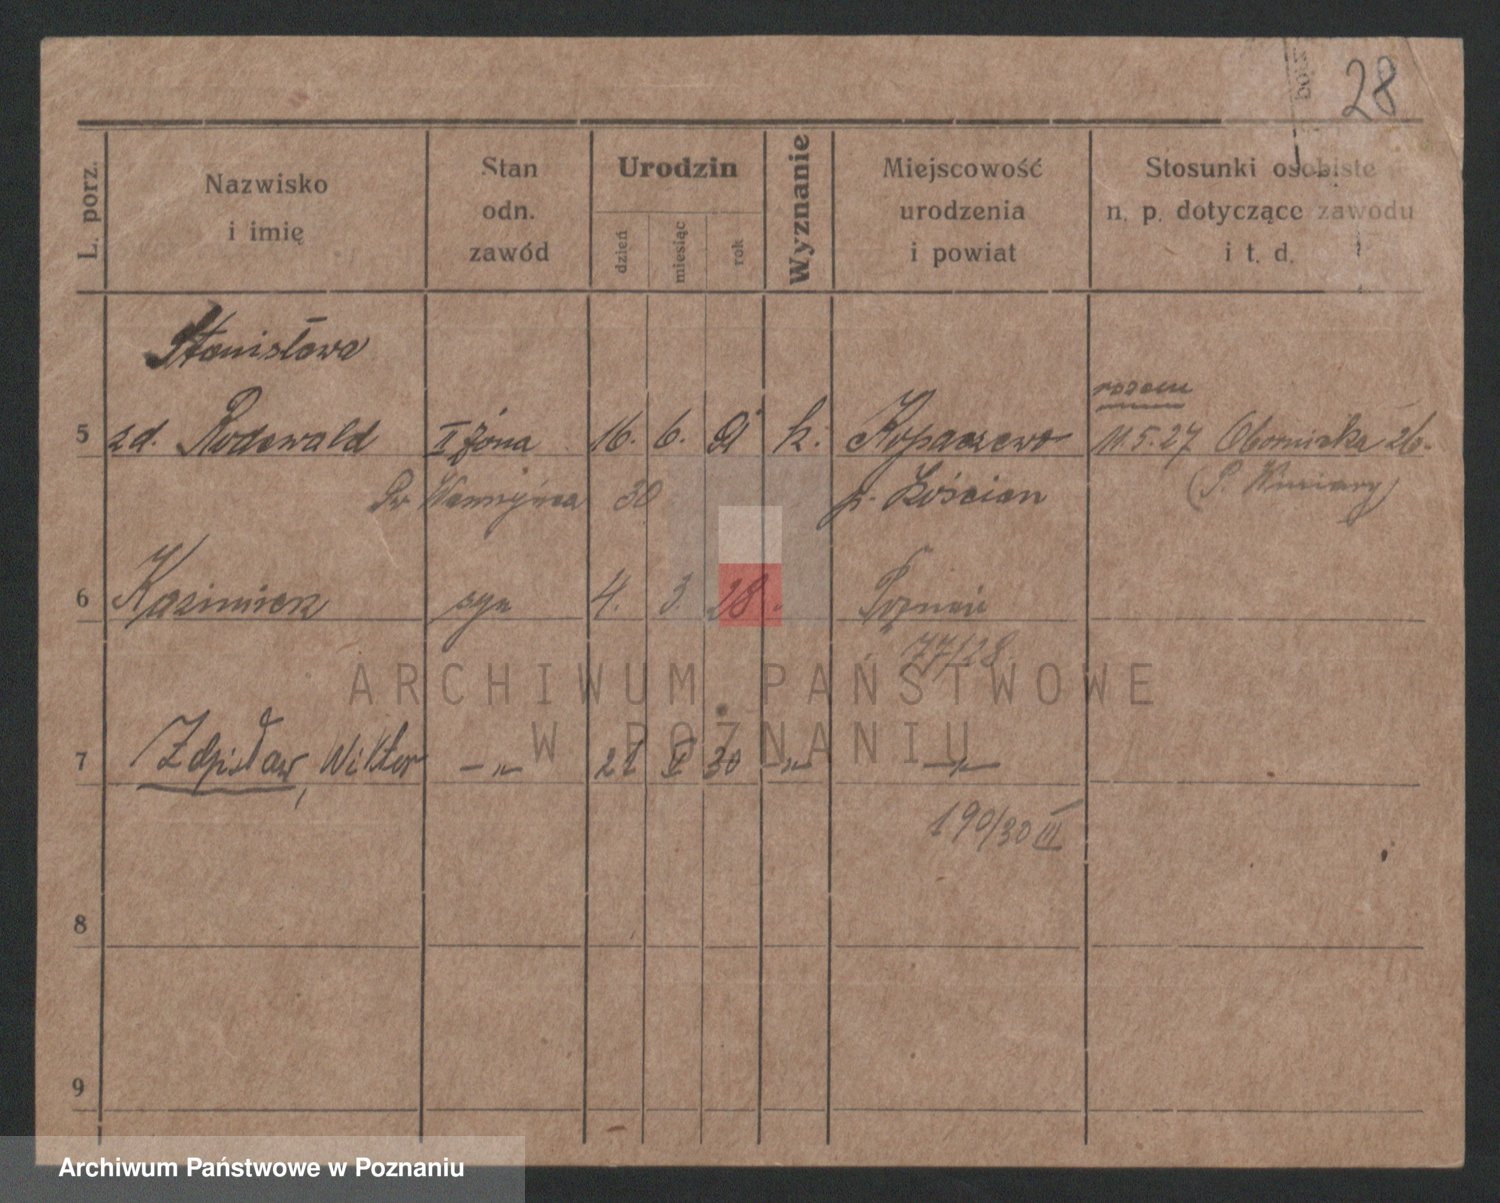 28
L. porz.
Nazwisko
i imię
Stan
odn.
zawód
Urodzin
dzień
miesiąc
rok
Wyznanie
Miejscowość
urodzenia
i powiat
Stosunki osobiste
n. p. dotyczące zawodu
i t. d.
Stanisława
razem
5 zd. Rodewald II żona 16. 6. k. Kopaszewo 11.5.27 Obornicka 26.
30 p. Kościan (P. Winiary)
6 Kazimierz syn 4. 3. 28. Poznań
77/28.
7 Zdzisław, Wiktor —„— 21 V 30 —„— —„—
190/30 III
8
9
ARCHIWUM PAŃSTWOWE
W POZNANIU
Archiwum Państwowe w Poznaniu